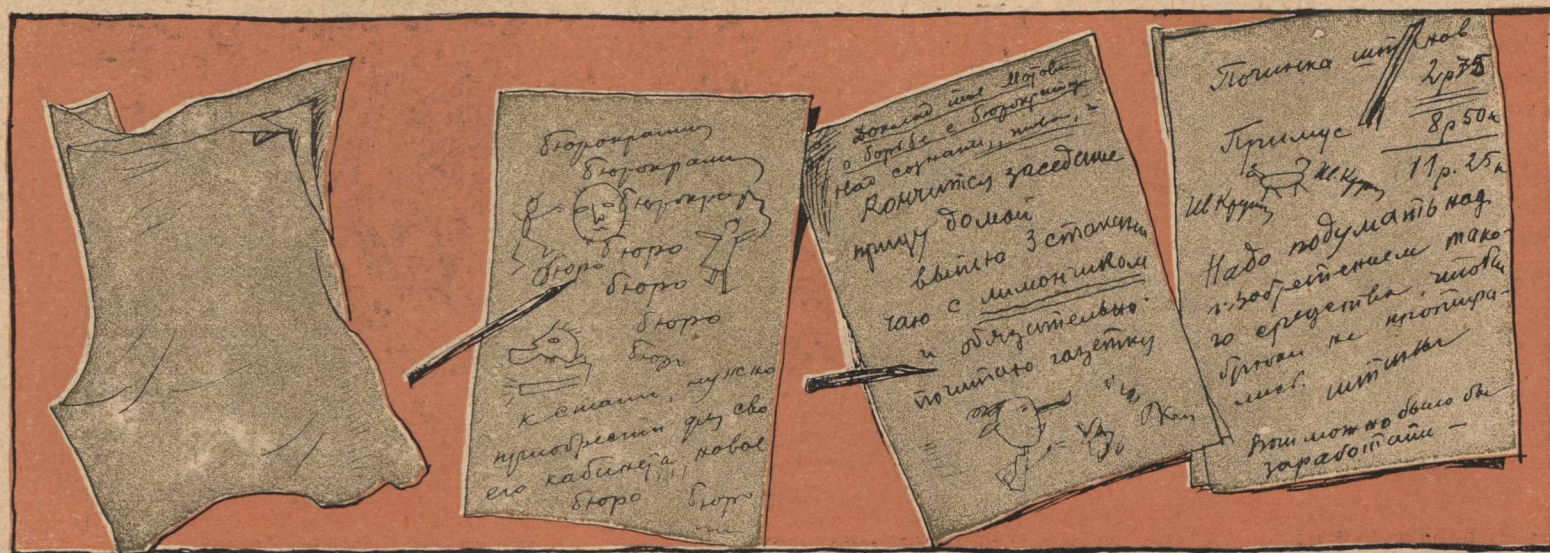 бюрокрашиз
бюрокраши
бюрокраш
бюро
бюро
бюро
бюро
бюро
кстати, нужно
приобрести для сво
его кабинета, новое
бюро бюро
Доклад тов.
о борьбе с
Над
Кончится заседание
приду домой
выпью 3 стакана
чаю с лимончиком
и обязательно
почитаю газетку
Починка штанов
2р 75
Примус 8р 50к
11р. 25к
Надо подумать над
изобретением тако-
го средства, чтобы
брюки не протира-
лись.
штаны
Вот можно было бы
заработать —